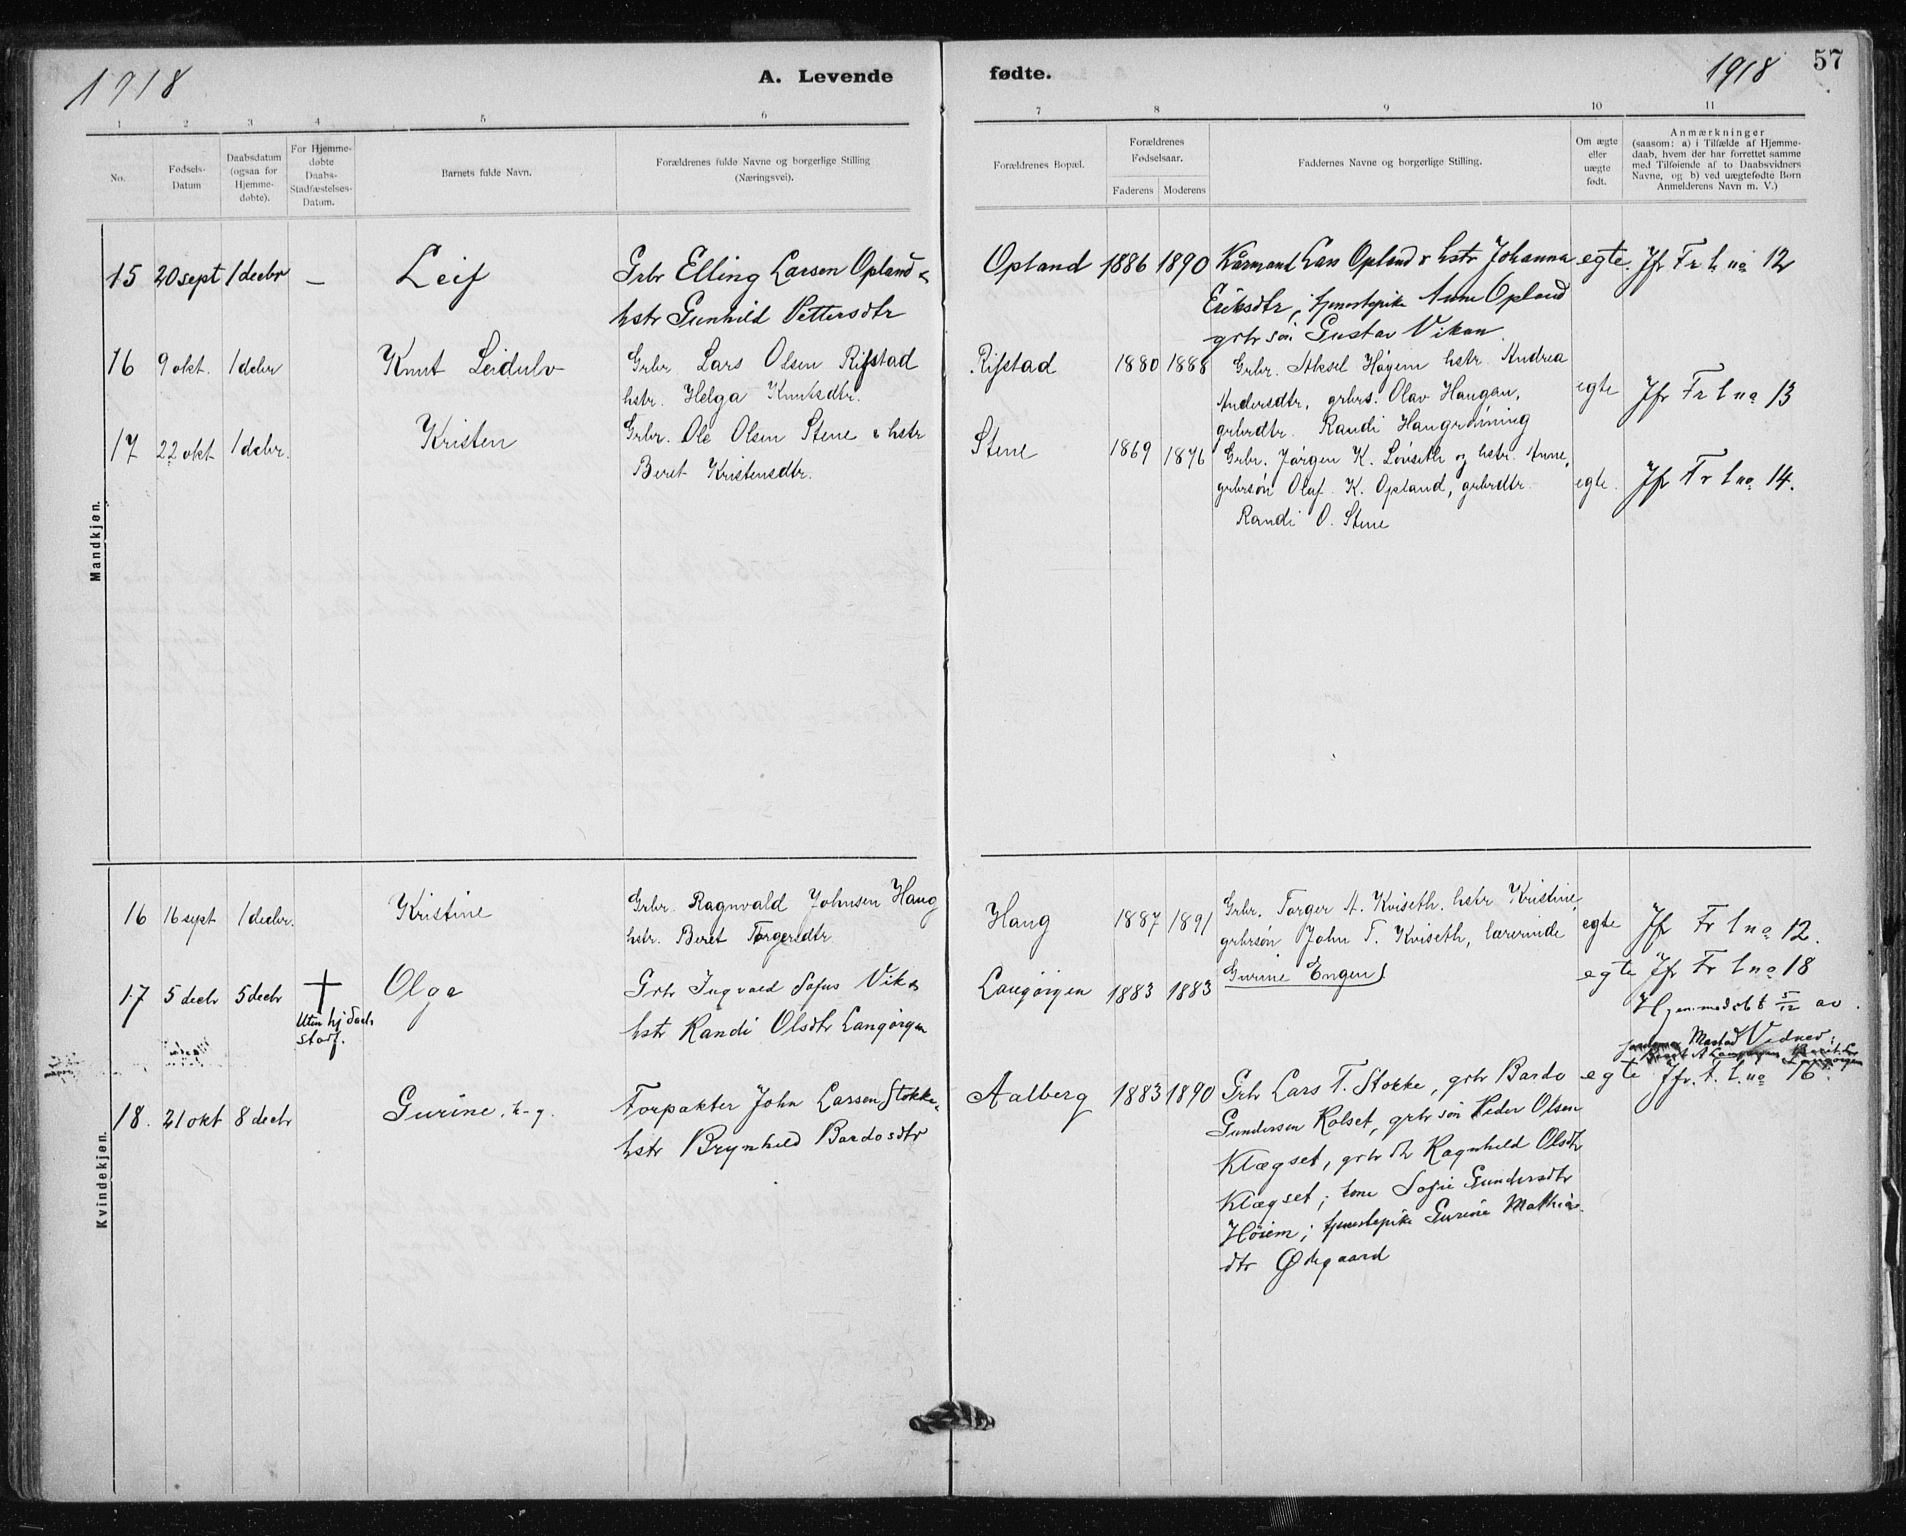 1918
A. Levende fødte.
1918
57
1 2 3 4 5 6 7 8 9 10 11
No.
Fødsels-
Datum
Daabsdatum
(ogsaa for
Hjemme-
døbte).
For Hjemme-
døbte
Daabs-
Stadfæstelses-
Datum.
Barnets fulde Navn.
Forældrenes fulde Navne og borgerlige Stilling
(Næringsvei).
Forældrenes Bopæl.
Forældrenes
Fødselsaar.
Faderens Moderens
Faddernes Navne og borgerlige Stilling.
Om ægte
eller
uægte
født.
Anmærkninger
(saasom: a) i Tilfælde af Hjemme-
daab, hvem der har forrettet samme
med Tilføiende af to Daabsvidners
Navne, og b) ved uægtefødte Børn
Anmelderens Navn m. V.)
Mandkjøn.
15 20 sept 1 decbr – Leif
Grbr Elling Larsen Opland &
hstr Gunhild Pettersdtr
Opland 1886 1890
Kårmand Lars Opland & hstr Johanna
Eriksdtr, tjenestepike Anne Opland
grbr søn Gustav Vikan.
egte. Jfr Fr l no 12
16 9 okt. 1 decbr Knut Leidulv
Grbr. Lars Olsen Rifstad
hstr. Helga Knutsdtr.
Rifstad 1880 1888
Grbr. Aksel Høyem hstr. Andrea
Andersdtr, grbrs. Olav Haugan,
grbrdtr. Randi Haugrønning
egte Jfr Fr l no 13
17 22 okt 1 decbr. Kristen
Grbr. Ole Olsen Stene & hstr
Beret Kristensdtr.
Stene 1869 1876
Grbr. Jørgen K. Løvseth og hstr. Anne,
grbrsøn Olaf K. Opland, grbrdtr.
Randi O. Stene
egte. Jfr Fr l no 14.
Kvindekjøn.
16 16 sept 1 decbr. Kristine
Grbr. Ragnvald Johnsen Haug
hstr. Beret Torgersdtr
Haug 1887 1891
Grbr. Torger A. Kviseth. hstr Kristine,
grbrsøn John T. Kviseth, lærerinde
Gurine Engen
egte Jfr Fr l no 12.
17 5 decbr 5 decbr † Olga
Uten hj daabs
stadf.
Grbr Ingvald Sofus Vik &
hstr Randi Olsdtr Langørgen
Langørgen 1883 1883
egte Jfr Fr l no 18
Hjemmedøbt 5/12 av
jordemor Mostad Vidner:
Langørgen
18. 21 okt 8 decbr Gurine, t-g.
Forpakter John Larsen Stokke &
hstr Brynhild Bardosdtr
Aalberg 1883 1890
Grbr Lars T. Stokke, grbr Bardo
Gundersen Rolset, grbr søn Peder Olsen
Klægset, grbr dtr Ragnhild Olsdtr
Klægset; kone Sofie Gundersdtr
Høiem; tjenestepike Gurine Mathias-
dtr Ødegaard
egte Jfr. F. l. no 16.